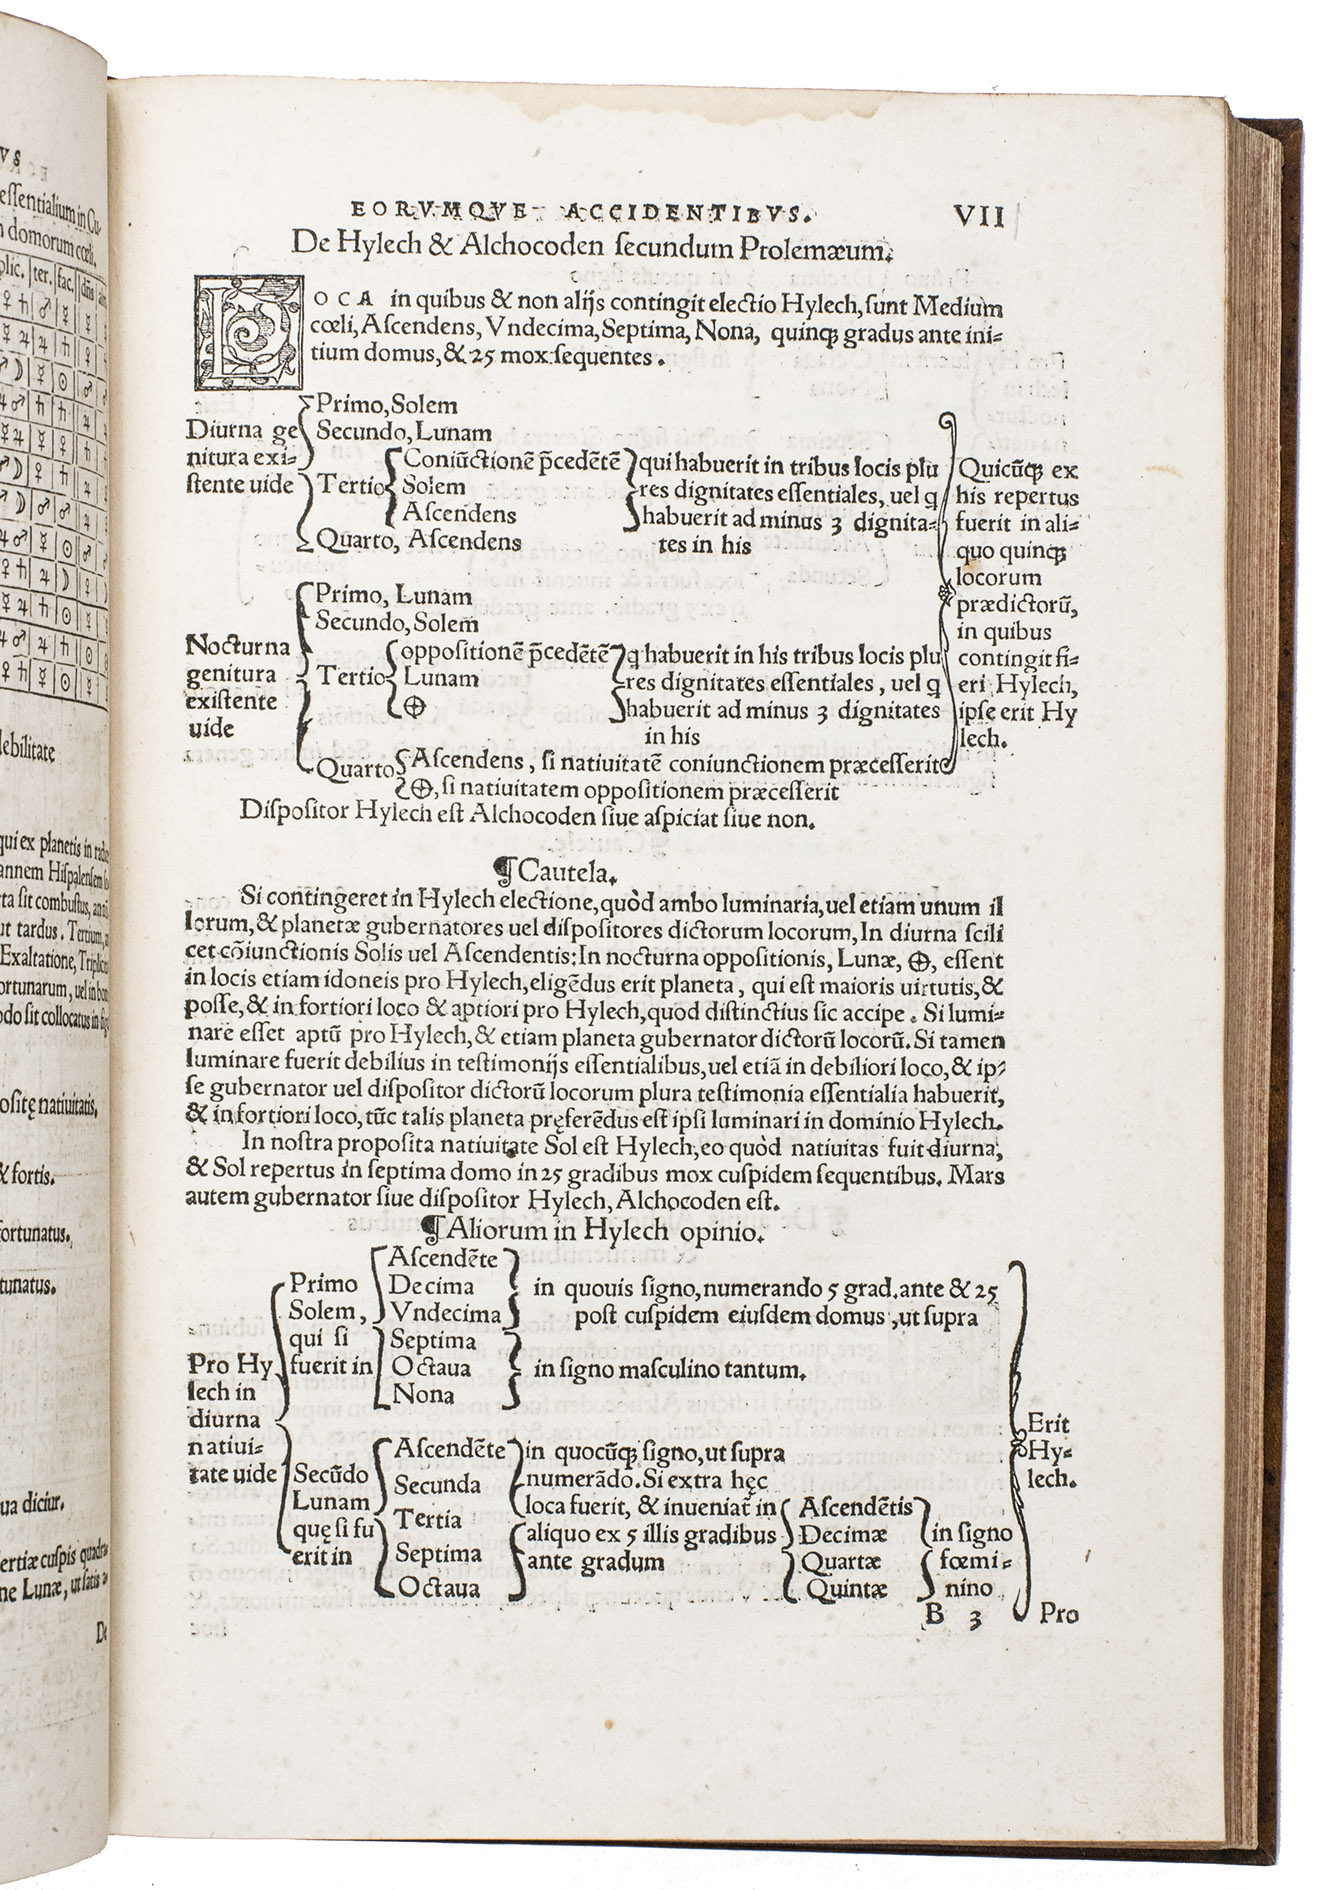 VS
essentialium in Cu-
domorum cœli.
plic. | ter. | fac. | dñs
♀ ♄ | ♂ | ☿ | ☿
debilitate
qui ex planetis in
annem Hispalensem
ta sit combustus,
ut tardus. Tertium,
Exaltatione, Triplici
ortunarum, uel in bon
odo sit collocatus in
ositę natiuitatis,
& fortis.
fortunatus.
tunatus.
ua dicitur.
ertiæ cuspis
ne Lunæ, ut satis
De
EORVMQVE ACCIDENTIBVS. VII
De Hylech & Alchocoden secundum Ptolemæum.
LOCA in quibus & non alijs contingit electio Hylech, sunt Medium
cœli, Ascendens, Vndecima, Septima, Nona, quinq; gradus ante ini-
tium domus, & 25 mox sequentes.
Diurna ge
nitura exi-
stente uide
Primo, Solem
Secundo, Lunam
Tertio
Coniũctionẽ p̃cedẽtẽ
Solem
Ascendens
qui habuerit in tribus locis plu
res dignitates essentiales, uel q
habuerit ad minus 3 dignita-
tes in his
Quarto, Ascendens
Nocturna
genitura
existente
uide
Primo, Lunam
Secundo, Solem
Tertio
oppositionẽ p̃cedẽtẽ
Lunam
⊕
q habuerit in his tribus locis plu
res dignitates essentiales, uel q
habuerit ad minus 3 dignitates
in his
Quarto
Ascendens, si natiuitatẽ coniunctionem præcesserit
⊕, si natiuitatem oppositionem præcesserit
Quicũq; ex
his repertus
fuerit in ali-
quo quinq;
locorum
prædictorũ,
in quibus
contingit fi-
eri Hylech,
ipse erit Hy
lech.
Dispositor Hylech est Alchocoden siue aspiciat siue non.
¶ Cautela.
Si contingeret in Hylech electione, quòd ambo luminaria, uel etiam unum il
lorum, & planetæ gubernatores uel dispositores dictorum locorum, In diurna scili
cet cõiunctionis Solis uel Ascendentis: In nocturna oppositionis, Lunæ, ⊕, essent
in locis etiam idoneis pro Hylech, eligẽdus erit planeta, qui est maioris uirtutis, &
posse, & in fortiori loco & aptiori pro Hylech, quod distinctius sic accipe. Si lumi-
nare esset aptũ pro Hylech, & etiam planeta gubernator dictorũ locorũ. Si tamen
luminare fuerit debilius in testimonijs essentialibus, uel etiã in debiliori loco, & ip-
se gubernator uel dispositor dictorũ locorum plura testimonia essentialia habuerit,
& in fortiori loco, tũc talis planeta pręferẽdus est ipsi luminari in dominio Hylech.
In nostra proposita natiuitate Sol est Hylech, eo quòd natiuitas fuit diurna,
& Sol repertus in septima domo in 25 gradibus mox cuspidem sequentibus. Mars
autem gubernator siue dispositor Hylech, Alchocoden est.
¶ Aliorum in Hylech opinio.
Pro Hy
lech in
diurna
natiui-
tate uide
Primo
Solem,
qui si
fuerit in
Ascendẽte
Decima
Vndecima
in quouis signo, numerando 5 grad. ante & 25
post cuspidem eiusdem domus, ut supra
Septima
Octaua
Nona
in signo masculino tantum.
Secũdo
Lunam
quę si fu
erit in
Ascendẽte
Secunda
Tertia
Septima
Octaua
in quocũq; signo, ut supra
numerãdo. Si extra hęc
loca fuerit, & inueniat̃ in
aliquo ex 5 illis gradibus
ante gradum
Ascendẽtis
Decimæ
Quartæ
Quintæ
in signo
fœmi-
nino
Erit
Hy-
lech.
B 3 Pro